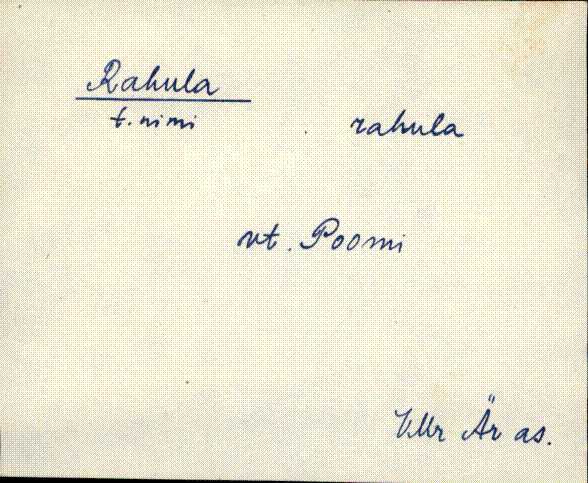 Rahula
t. nimi
rahula
vt. Poomi
VMr Är as.